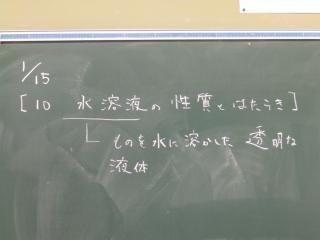 1/15
[10 水溶液の性質とはたらき]
ものを水に溶かした 透明な
液体